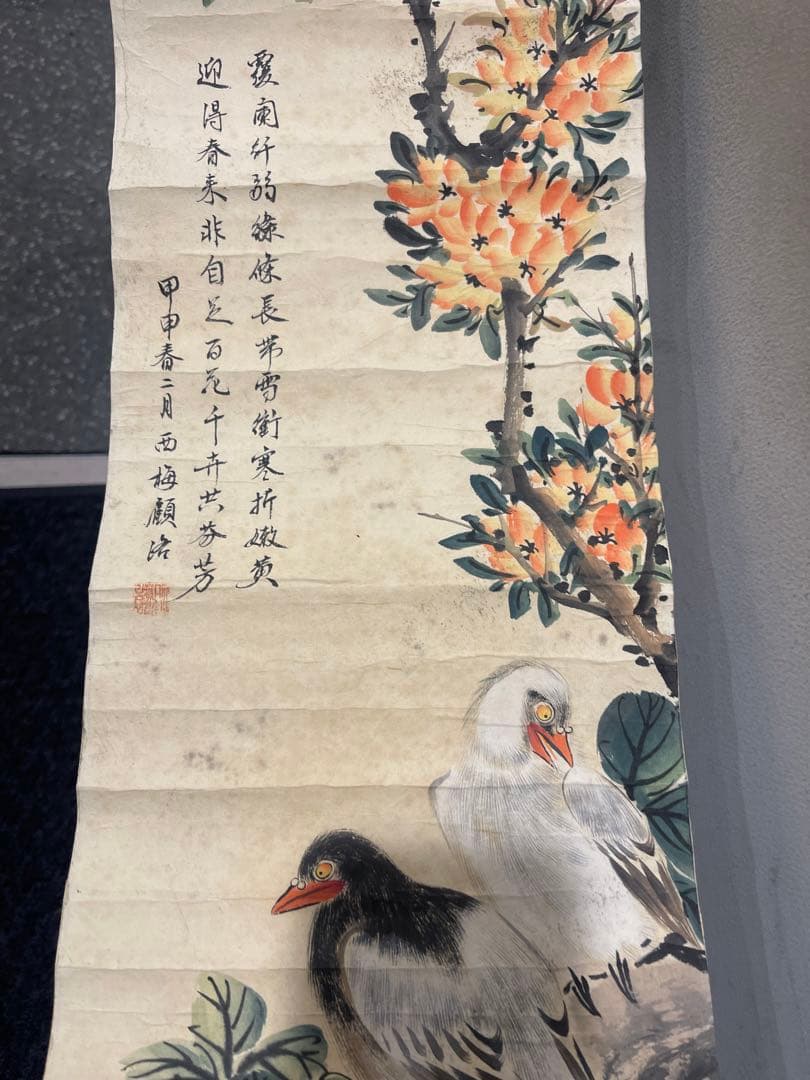 覆闌纤弱綠條長帶雪衝寒折嫩黃
迎得春来非自足百花千卉共芬芳
甲申春二月西梅顧洛